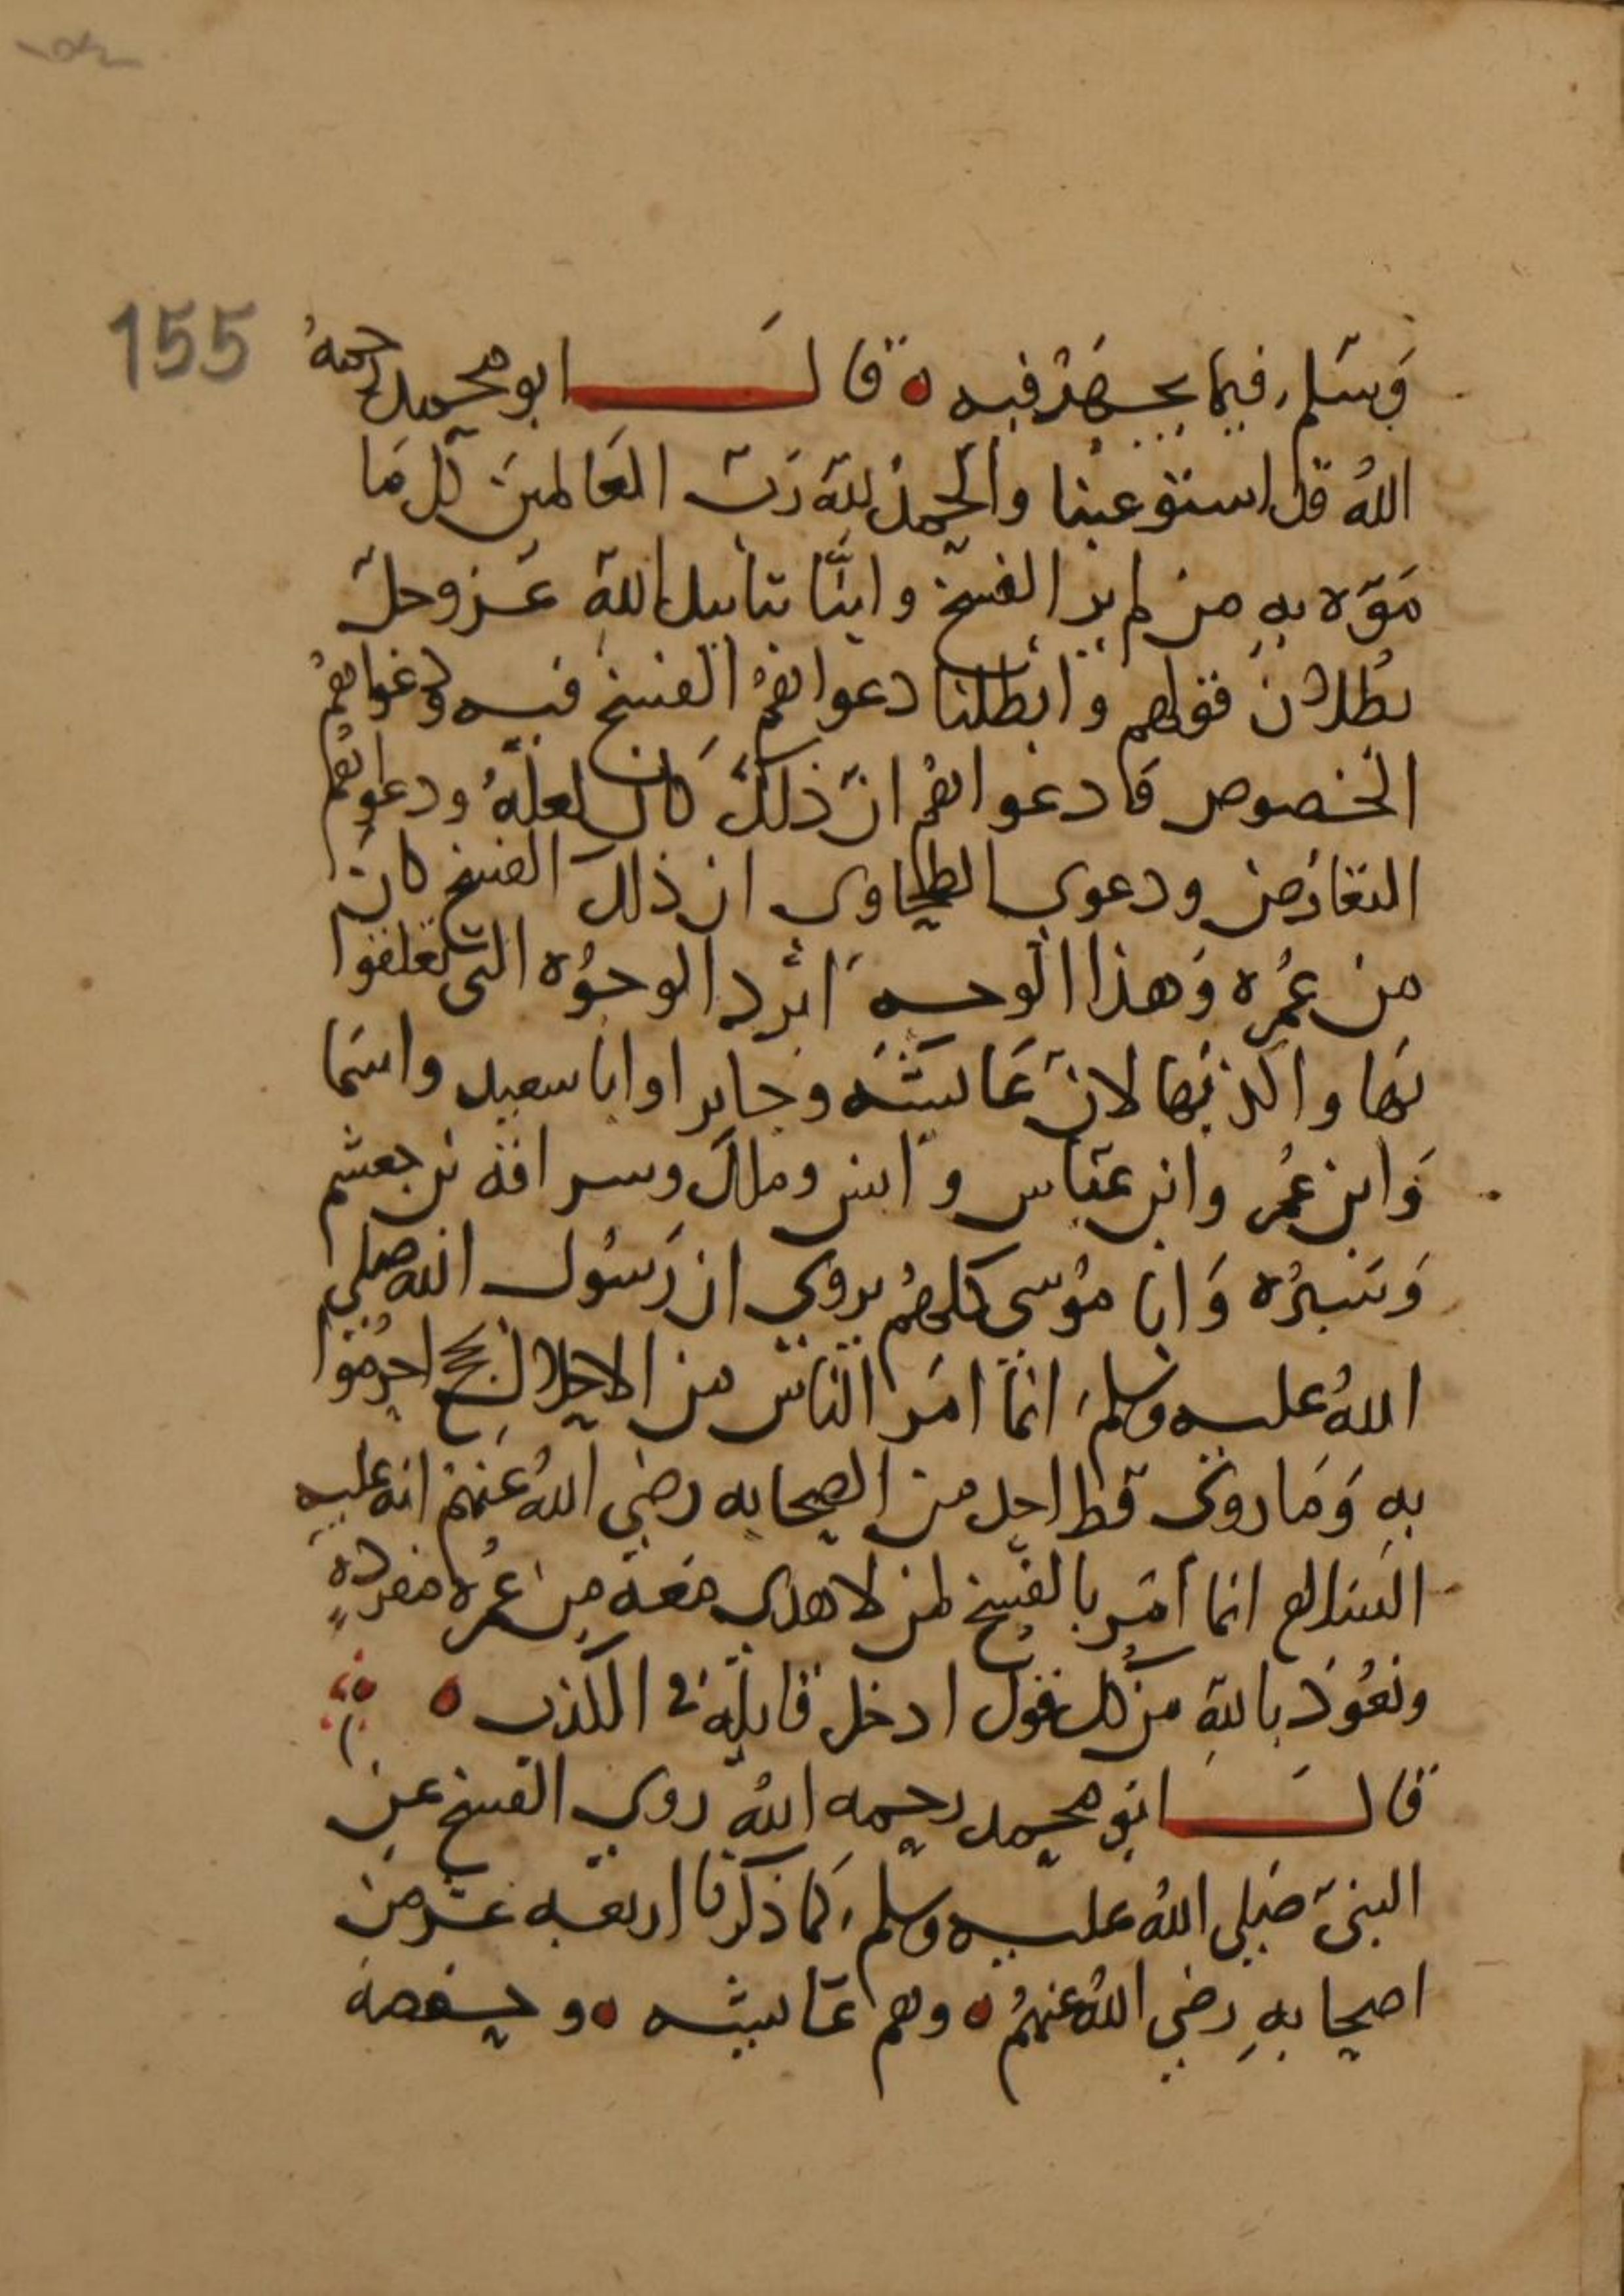 155
وَسَلم، فيما يجهَدْ فيه ٥ قالَ ابو محمد رحمهُ
اللهُ قد استوعبنا والحمدُ لله رَبّ العَالمينَ كل مَا
مَوّه بهِ من لم يرَ الفسخ وابنّا بتاييد اللهِ عَز وجلّ
بُطلان قولهم وابطلنا دعواهمُ الفسخ فيه ودَعواهمُ
الخصوص ودعواهمُ انّ ذلك كانَ لعلّهُ ودعواهُم
التعارض ودعوى الطحاوى ان ذلك الفسخ كان
من عُمره وَهذا الوجه ابْرد الوجوُه التي تعلقوا
بها واكذبها لانّ عَايشَه وجابرا وابا سعيد واسَما
وَابن عُمر وابن عبّاس وانس وملاك وسراقه بن جعشم
وَسَبرُه وَابا مُوسى كلهُم يروى ان رَسُول الله صلى
اللهُ عليه وسلم، انما امَر الناسَ من الاحلال بحج احرمُوا
بهِ وَمَا روىَ قط احد من الصحابه رضي اللهُ عَنهمْ انه عليهِ
السَلام انما أمَر بالفسخ لمن لا هدى معَه من عُمره مفردهٍ
ونعُوذ باللهِ من كل قول ادخل قايله في الكذب ٥
قالَ ابو محمد رحمه اللهُ روى الفسخ عن
النبىّ صَلى اللهُ عليه وسلم، كما ذكرنا اربعه عشَر من
اصحابهِ رضي اللهُ عنهمُ ٥ وهم عَايشه ٥ وحفصه